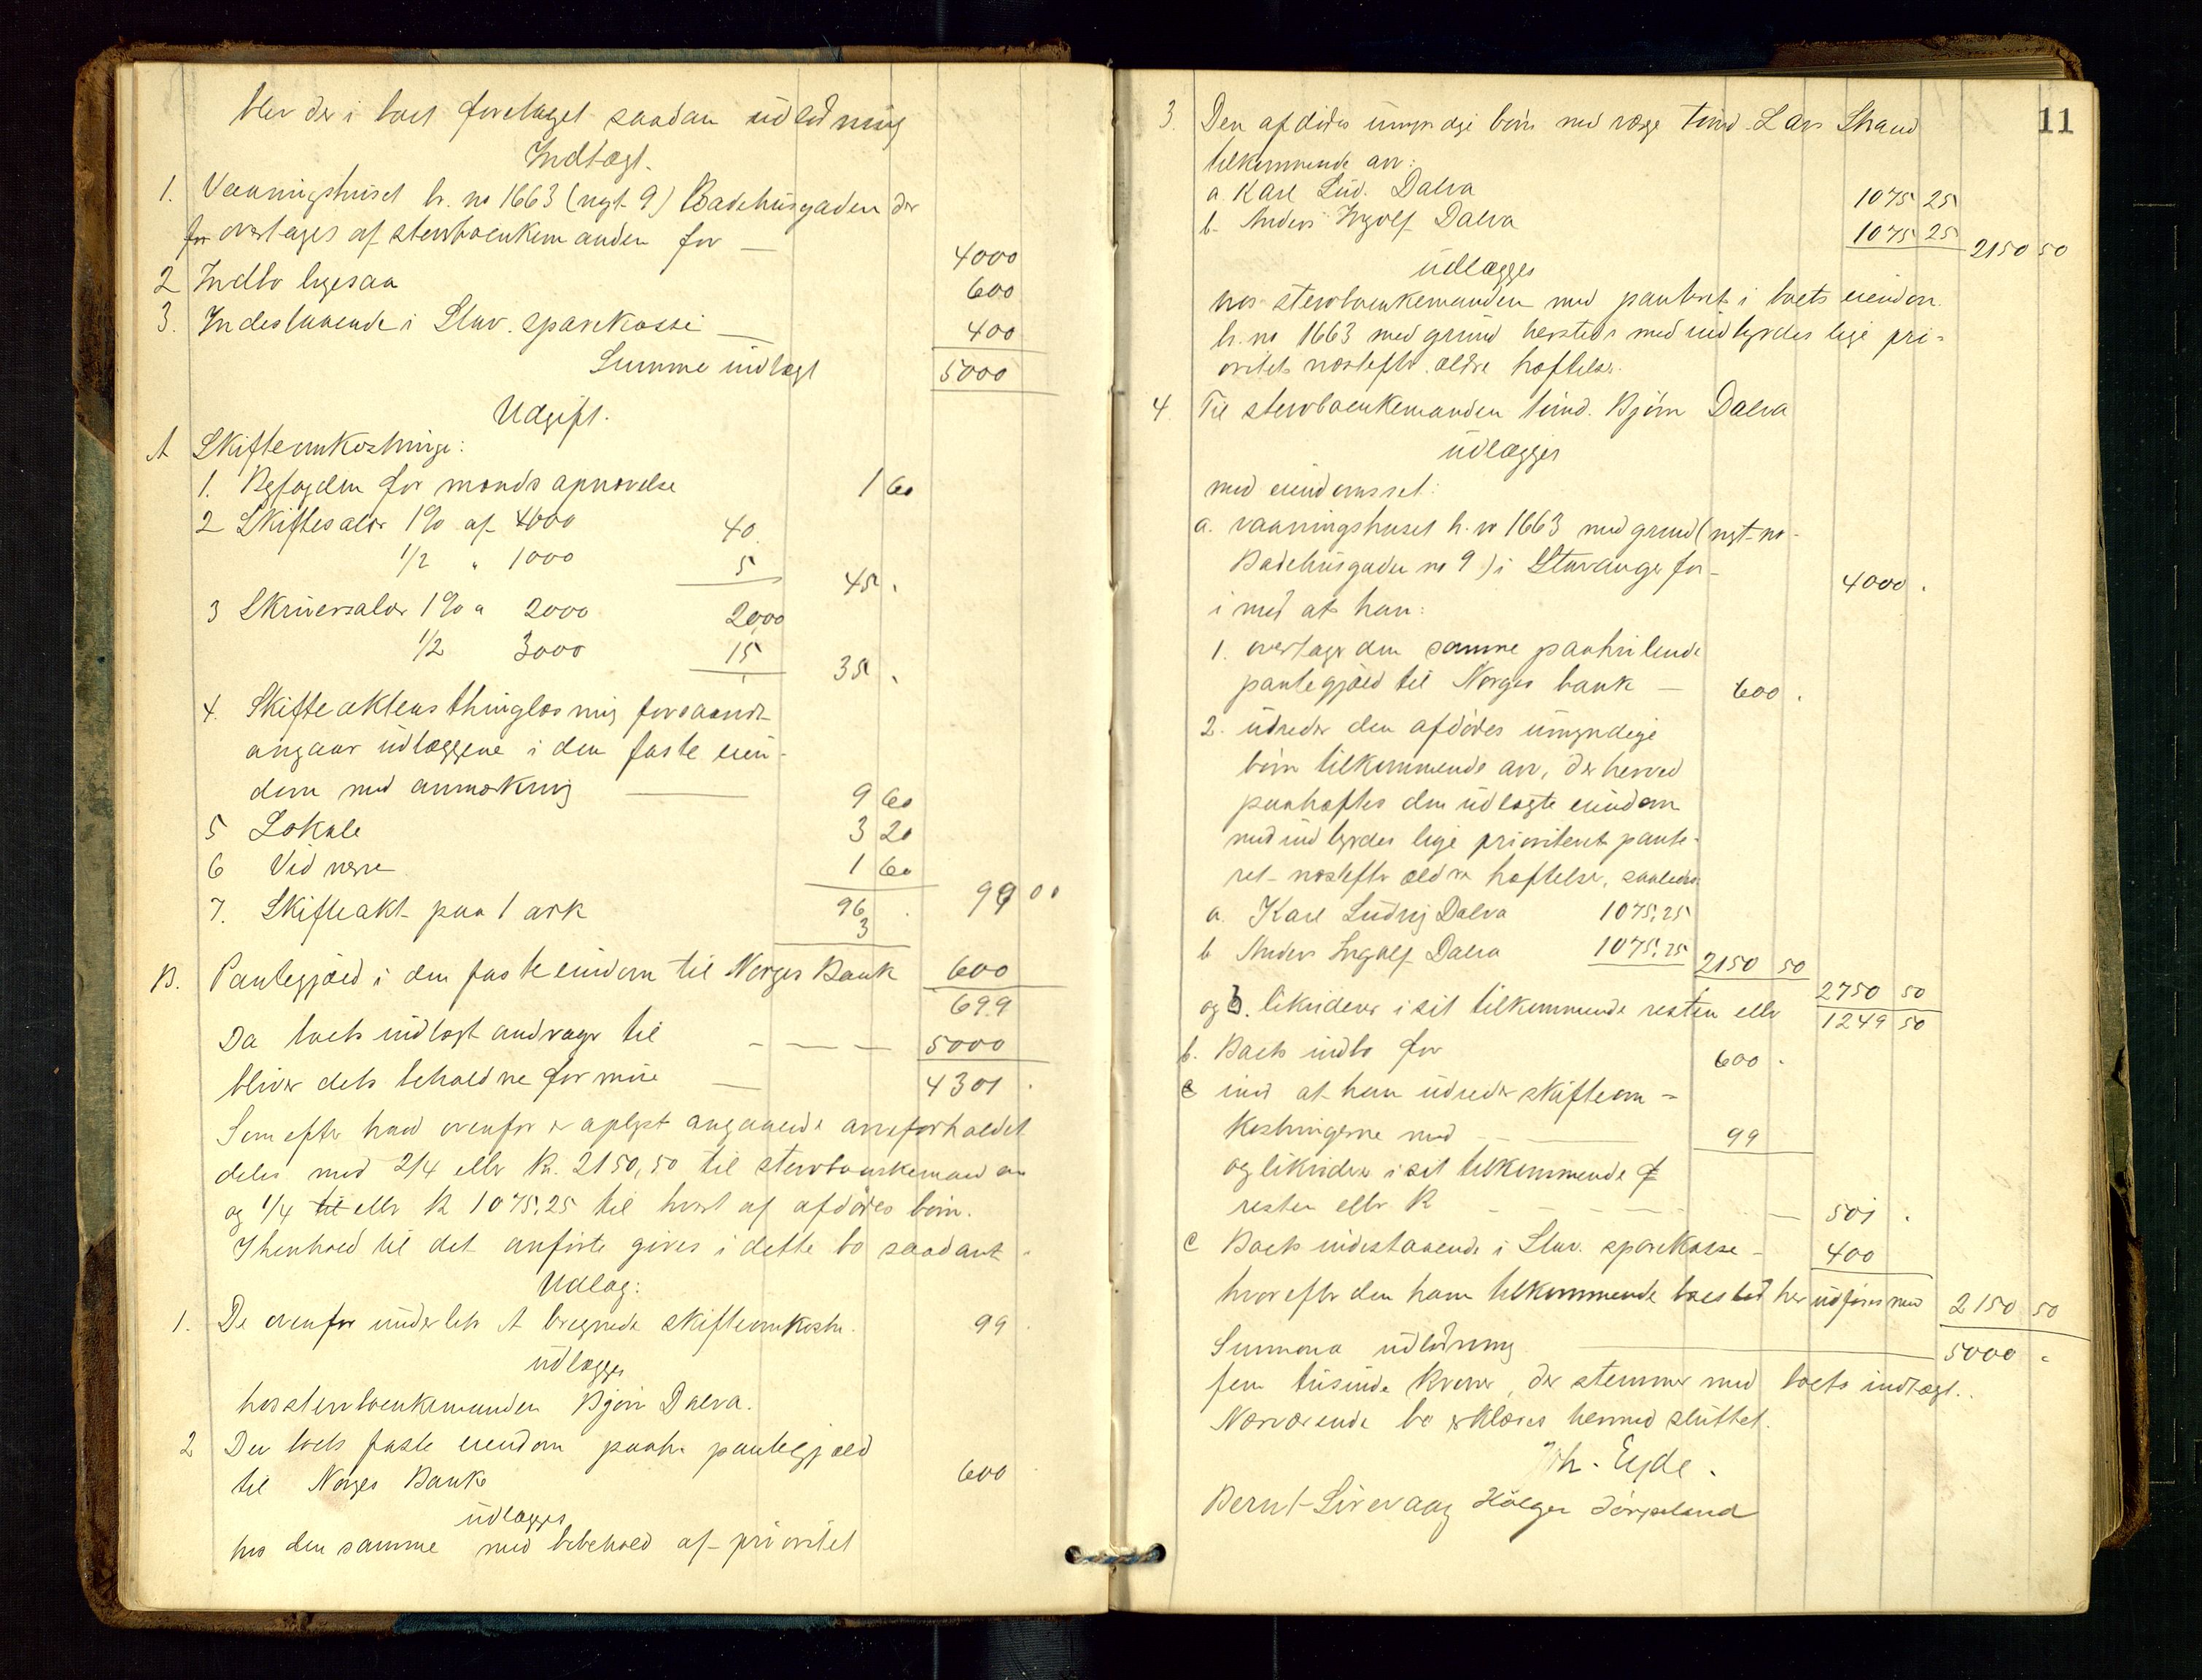 blev der i boet foretaget saadan udlodning
Indtægt.
1. Vaaningshuset br. no 1663 (nyt 9) Badehusgaden der
for overtages af stervboenkemanden for — 4000
2 Indbo ligesaa 600
3. Indestaaende i Stav. sparekasse — 400
Summa indtægt 5000
Udgift.
A Skifteomkostninger:
1. Byfogden for arvens anmeldelse 1 60
2 Skiftesalær 1% af 4000 40.
1/2 " 1000 5 45.
3 Skriversalær 1% a 2000 20,00
1/2 3000 15 35.
4. Skifteaktens thinglæsning forsaavidt
angaar udlæggene i den faste eien-
dom med anmerkning — 9 60
5 Lokale 3 20
6 Vidner 1 60
7. Skifteakt paa 1 ark 96. 3 99 00
B. Pantegjæld i den faste eiendom til Norges Bank 600
699
Da boets indtægt andrager til — — — 5000
bliver dets beholdne formue — 4301.
Som efter hvad ovenfor er oplyst angaaende arveforholdet
deles med 2/4 eller Kr. 2150,50 til stervboenkemanden
og 1/4 til eller Kr 1075,25 til hvert af afdødes børn.
I henhold til det anførte gives i dette bo saadant
Udlæg:
1. De ovenfor under litr A beregnede skifteomkostn. 99.
udlægges
hos stervboenkemanden Bjørn Dalva.
2 Den boets faste eiendom paahv. pantegjæld
til Norges Bank 600
udlægges
hos den samme med bibehold af prioritet
11
3. Den afdødes umyndige børn med verge tømd. Lars Strand
tilkommende arv:
a. Karl Lud. Dalva 1075 25
b. Anders Ingolf Dalva 1075 25 2150 50
udlægges
hos stervboenkemanden med panteret i boets eiendom
br. no 1663 med grund hersteds med indbyrdes lige pri-
oritet næstefter ældre heftelser.
4. Til stervboenkemanden tømd. Bjørn Dalva
udlægges
med eiendomsret:
a. vaaningshuset br. no 1663 med grund (nyt no
Badehusgaden no 9) i Stavanger for — 4000.
i mod at han:
1. overtager den samme paahvilende
pantegjæld til Norges bank — 600.
2. udreder den afdødes umyndige
børn tilkommende arv, der herved
paaheftes den udlagte eiendom
med indbyrdes lige prioriteret pante-
ret næstefter ældre heftelser, saaledes
a. Karl Ludvig Dalva 1075,25
b Anders Ingolf Dalva 1075,25 2150 50
2750 50
og 3. likviderer i sit tilkommende resten eller 1249 50
b. Boets indbo for 600.
mod at han udreder skifteom-
kostningerne med — 99
og likviderer i sit tilkommende
resten eller Kr — — — — 501.
c Boets indestaaende i Stav. sparekasse — 400
hvorefter den ham tilkommende boeslod her udføres med 2150 50
Summa udlodning — 5000 -
fem tusinde kroner, der stemmer med boets indtægt..
Nærværende bo erklæres hermed sluttet.
Joh. Eyde.
Bernt Lirevaag Holger Jørpeland